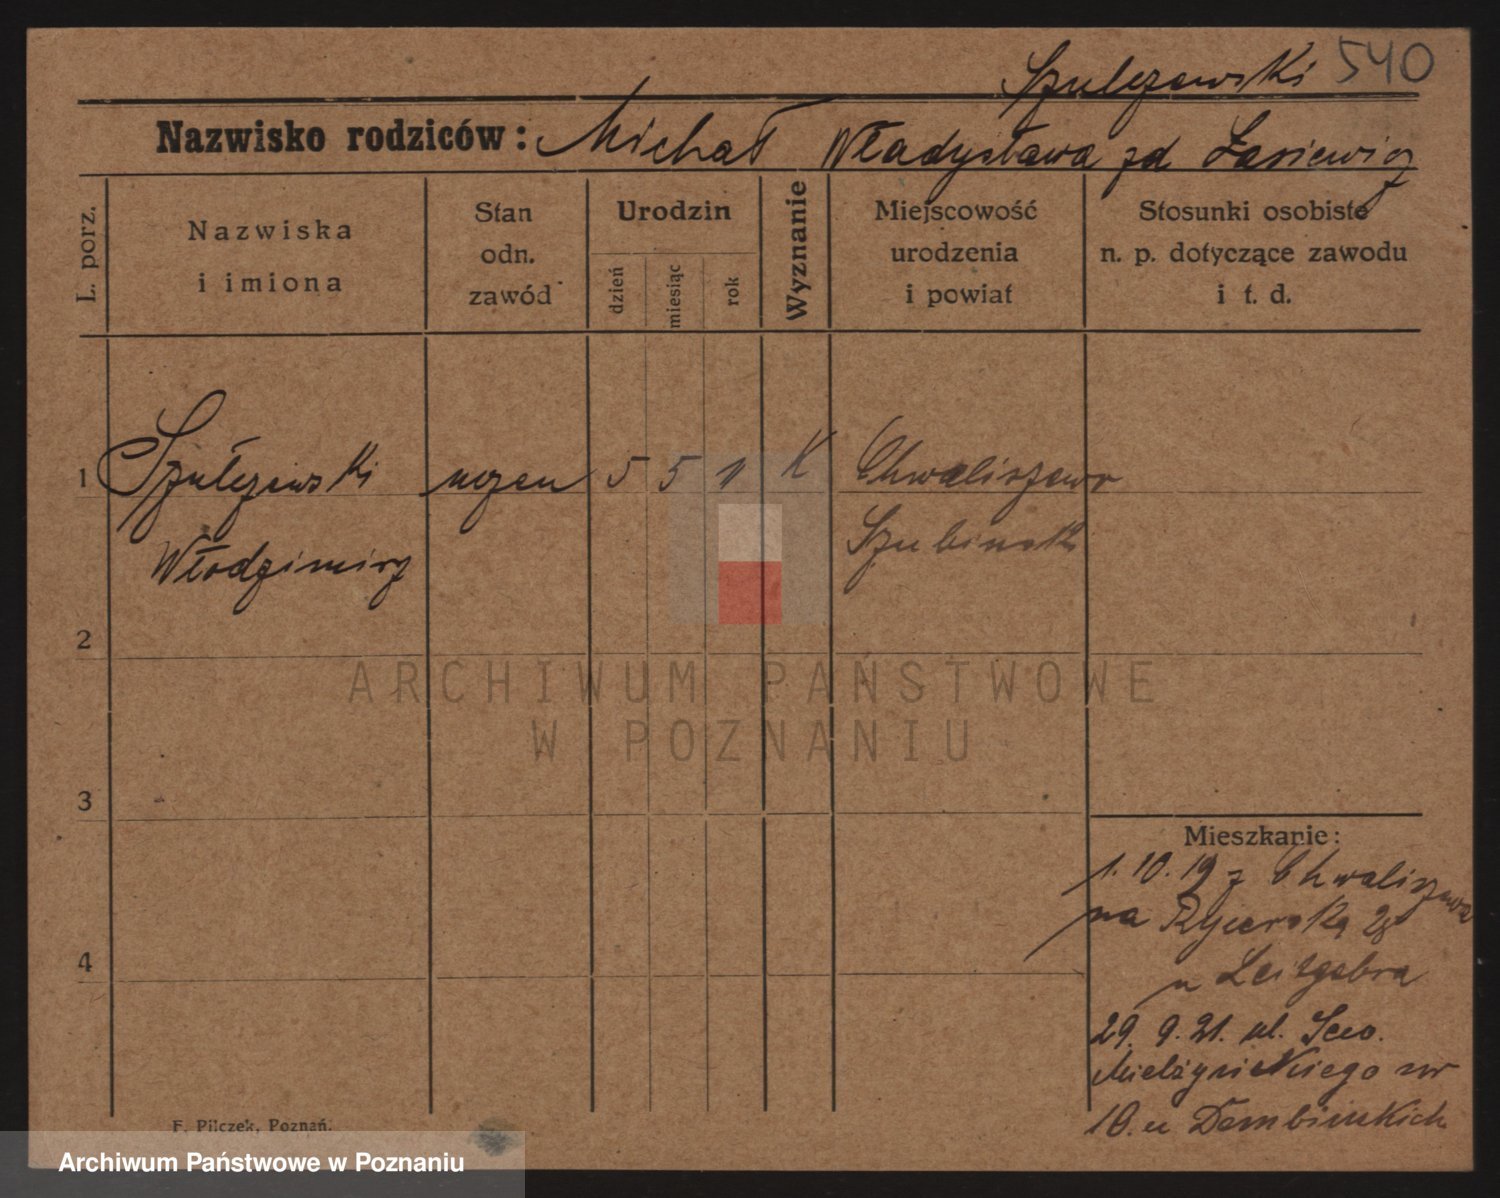 Szulczewski 540
Nazwisko rodziców: Michał Władysława zd Łasiewicz
L. porz.
Nazwiska
i imiona
Stan
odn.
zawód
Urodzin
dzień
miesiąc
rok
Wyznanie
Miejscowość
urodzenia
i powiat
Stosunki osobiste
n. p. dotyczące zawodu
i t. d.
1 Szulczewski uczeń 5 5 K Chwaliszewo
Włodzimirz Szubinsk
2
3
4
Mieszkanie:
1.10.19 z Chwaliszewa
na Rycerską
u Leitgebra
29. 9. 21. ul. Sew.
Mielżyńskiego nr
10. u Dembińskich
F. Pilczek, Poznań.
ARCHIWUM PAŃSTWOWE
W POZNANIU
Archiwum Państwowe w Poznaniu